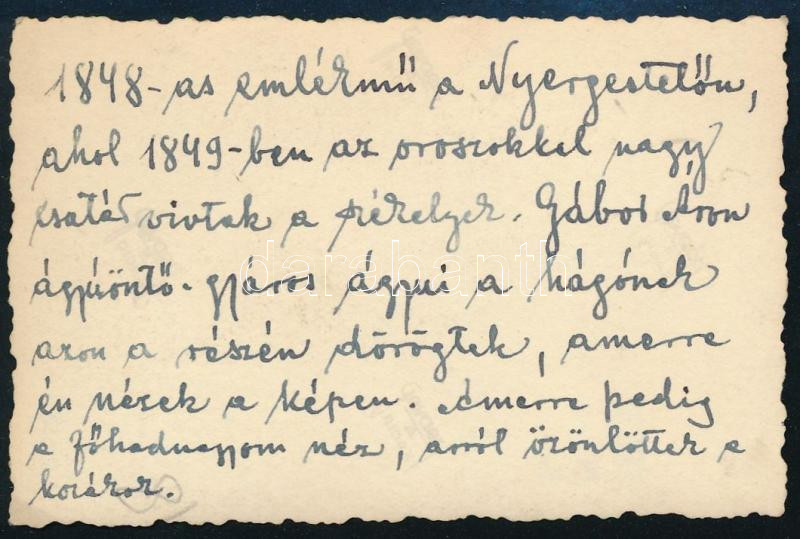 1848-as emlékmű a Nyergestetőn,
ahol 1849-ben az oroszokkal nagy
csatát vivtak a székelyek. Gábor Áron
ágyúöntő-gyáros ágyui a hágónak
azon a részén dörögtek, amerre
én nézek a képen. Amerre pedig
a főhadnagyom néz, arról özönlöttek a
kozákok.
darabanth